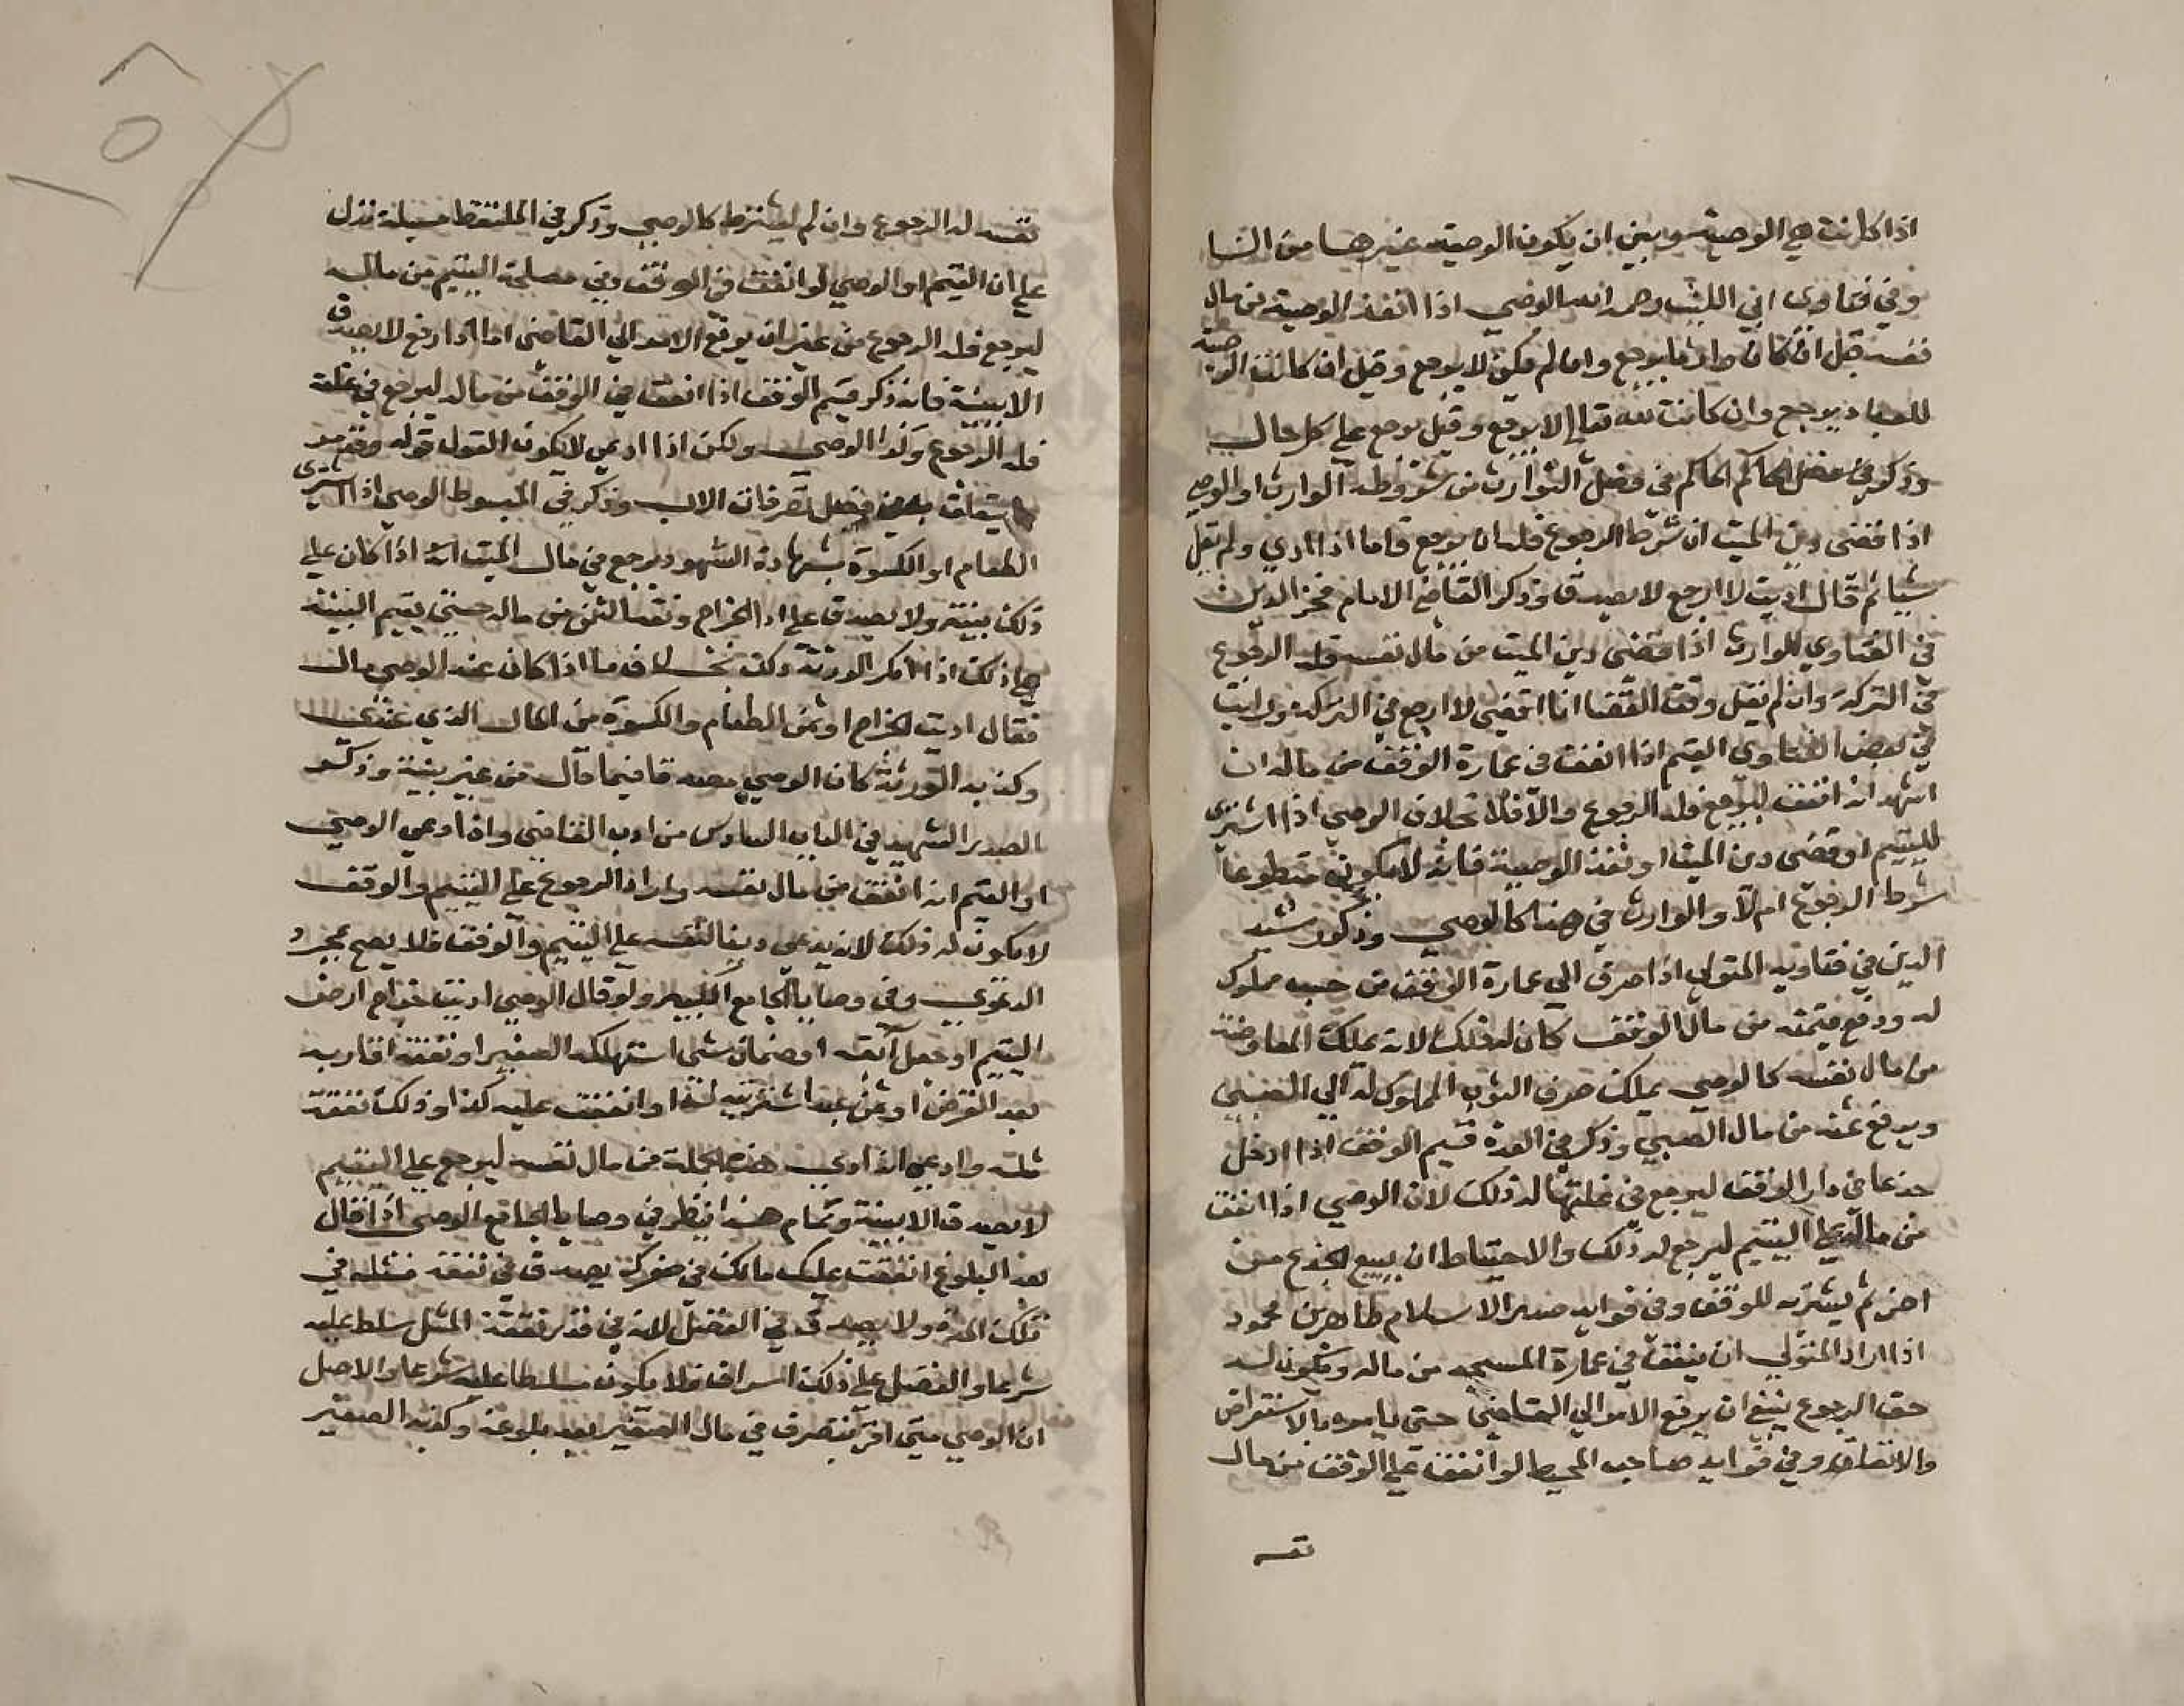 اذا كانت هي الوصية وبين ان يكون الوصية غيرها من النسا
وفي فتاوى ابي الليث رحمه الله الوصي اذا انفذ الوصية من مال
نفسه قيل ان كان وارثا يرجع وان لم يكن لا يرجع وقيل ان كانت الوصية
للعباد يرجع وان كانت لله تعالى لا يرجع وقيل يرجع على كل حال
وذكر في الحاكم في فصل من شروطه الوارث او الوصي
اذا قضى دين الميت ان شرط الرجوع فله ان يرجع فاما اذا ادى ولم يقل
شيا ثم قال اديت لا ارجع لا يصدق وذكر القاضي الامام فخر الدين
في الفتاوي للوارث اذا قضى دين الميت من مال نفسه فله الرجوع
في التركة وان لم يقل وقت القضا انا اقضي لا ارجع في التركة ورايت
في بعض الفتاوى القيم اذا انفق في عمارة الوقف من ماله ان
اشهد انه انفق ليرجع فله الرجوع والا فلا بخلاف الوصي اذا اشترى
لليتيم او قضى دين الميت او نفذ الوصية فانه لا يكون متطوعا
شرط الرجوع ام لا والوارث في هذا كالوصي وذكر رشيد
الدين في فتاويه المتولي اذا صرف الى عمارة الوقف من خشبه مملوك
له ودفع قيمته من مال الوقف كان له ذلك لانه يملك المعاوضة
من مال نفسه كالوصي يملك صرف الثوب المملوك له الى الصبي
ويدفع ثمنه من مال الصبي وذكر في العدة قيم الوقف اذا ادخل
جذعا في دار الوقف ليرجع في غلتها له ذلك لان الوصي اذا انفق
من ماله على اليتيم ليرجع له ذلك والاحتياط ان يبيع الجذع من
اخر ثم يشتريه للوقف وفي فوايد صدر الاسلام طاهر بن محمود
اذا اراد المتولي ان ينفق في عمارة المسجد من ماله ويكون له
حق الرجوع ينبغي ان يرفع الامر الى القاضي حتى يامره بالاستقراض
والانفاق وفي فوايد صاحب المحيط لو انفق على الوقف من مال
نفسه
نفسه له الرجوع وان لم يشترط كالوصي وذكر في الملتقط مسيلة تدل
على ان القيم او الوصي لو انفق في الوقف وفي مصلحة اليتيم من ماله
ليرجع فله الرجوع من غير ان يرفع الامر الى القاضي اما اذا رفع لا يصدق
الا ببينة فانه ذكر قيم الوقف اذا انفق في الوقف من ماله ليرجع في غلته
فله الرجوع وكذا الوصي ولكن اذا ادعى لا يكون القول قوله وفيه
ما يتعلق بهذا في فصل تصرفات الاب وذكر في المبسوط الوصي اذا اشترى
الطعام او الكسوة بشهادة الشهود يرجع في مال الميت انه اذا كان على
ذلك بينة ولا يصدق على ادا الخراج ونقد الثمن من ماله حتى يقيم البينة
على ذلك اذا انكر الورثة ذلك بخلاف ما اذا كان عند الوصي مال
فقال اديت الخراج او ثمن الطعام والكسوة من المال الذي عندي
وكذبه الورثة كان الوصي مصدقا فيما قال من غير بينة وذكر
الصدر الشهيد في الباب السادس من ادب القاضي واذا ادعى الوصي
او القيم انه انفق من مال نفسه واراد الرجوع على اليتيم والوقف
لا يكون له ذلك لانه يدعي دينا لنفسه على اليتيم والوقف فلا يصح بمجرد
الدعوى وفي وصايا الجامع الكبير ولو قال الوصي اديت خراج ارض
اليتيم او جعل ابقه او ضمان شي استهلكه الصغير او نفقة اقاربه
بعد الفرض او ثمن عبد اشتريته لك او انفقت عليه كذا وذلك نفقة
مثله وادعى انه ادى هذه الجملة من مال نفسه ليرجع على اليتيم
لا يصدق الا ببينة وتمام هذا ينظر في وصايا الجامع الوصي اذا قال
بعد البلوغ انفقت عليك مالك في صغرك يصدق في نفقة مثله في
تلك المدة ولا يصدق في الفضل لانه في قدر نفقة المثل سلط عليه
شرعا والفضل على ذلك اسراف فلا يكون مسلطا عليه شرعا والاصل
ان الوصي متى اقر بتصرف في مال الصغير بعد بلوغه وكذبه الصغير